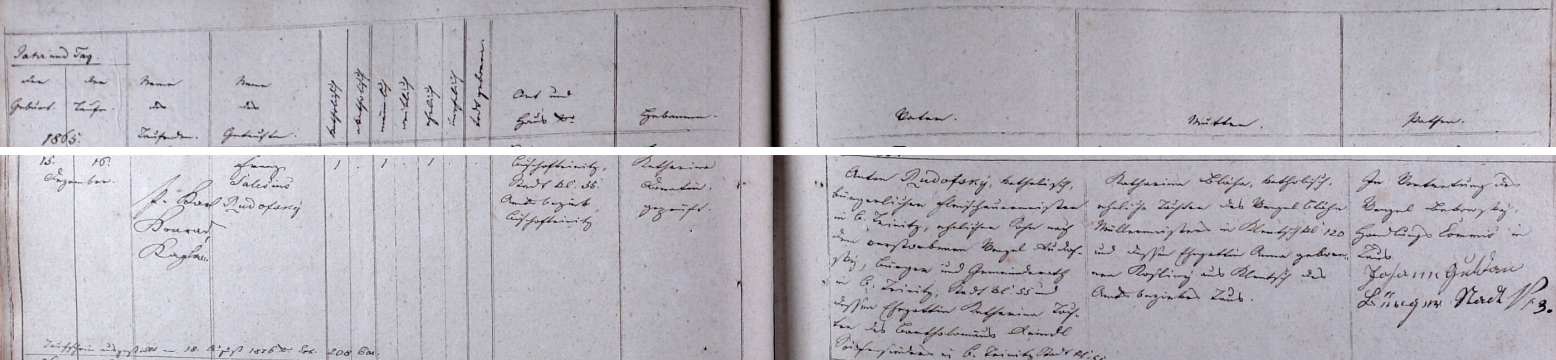 Jahr und Tag.
der
Geburt.
der
Taufe.
1865.
Name
des
Taufenden.
Name
des
Getauften.
katholisch
akatholisch
männlich
weiblich
ehelich
unehelich
todt geboren.
Ort und
Haus Nr.
Hebamme.
Vater.
Mutter.
Pathen.
15. 16.
Dezember.
P. Karl
Konrad,
Kaplan.
Franz
Salesius
Rudofsky
1 . 1 . 1 .
Bischofteinitz,
Stadt Nr. 55.
Amtsbezirk
Bischofteinitz
Katharina
geprüft.
Anton Rudofsky, katholisch,
bürgerlicher Fleischhauermeister
in B. Teinitz, ehelicher Sohn nach
dem verstorbenen Wenzel Rudof-
sky, Bürger und Gemeinderath
in B. Teinitz, Stadt Nr 55 und
dessen Ehegattin Katharina Toch-
ter des Bartholomäus
in B. Teinitz Stadt
Katharina Bláha, katholisch,
eheliche Tochter des Wenzel Bláha
Müllermeisters in Klentsch Nr 120
und dessen Ehegattin Anna gebor-
nen aus Klentsch des
Amtsbezirkes Taus.
In Vertretung des
Wenzel
Handlungs Commis in
Taus
Johann Guldan
Bürger Stadt Nr. 3.
Taufschein ausgestellt am 18. August 1876